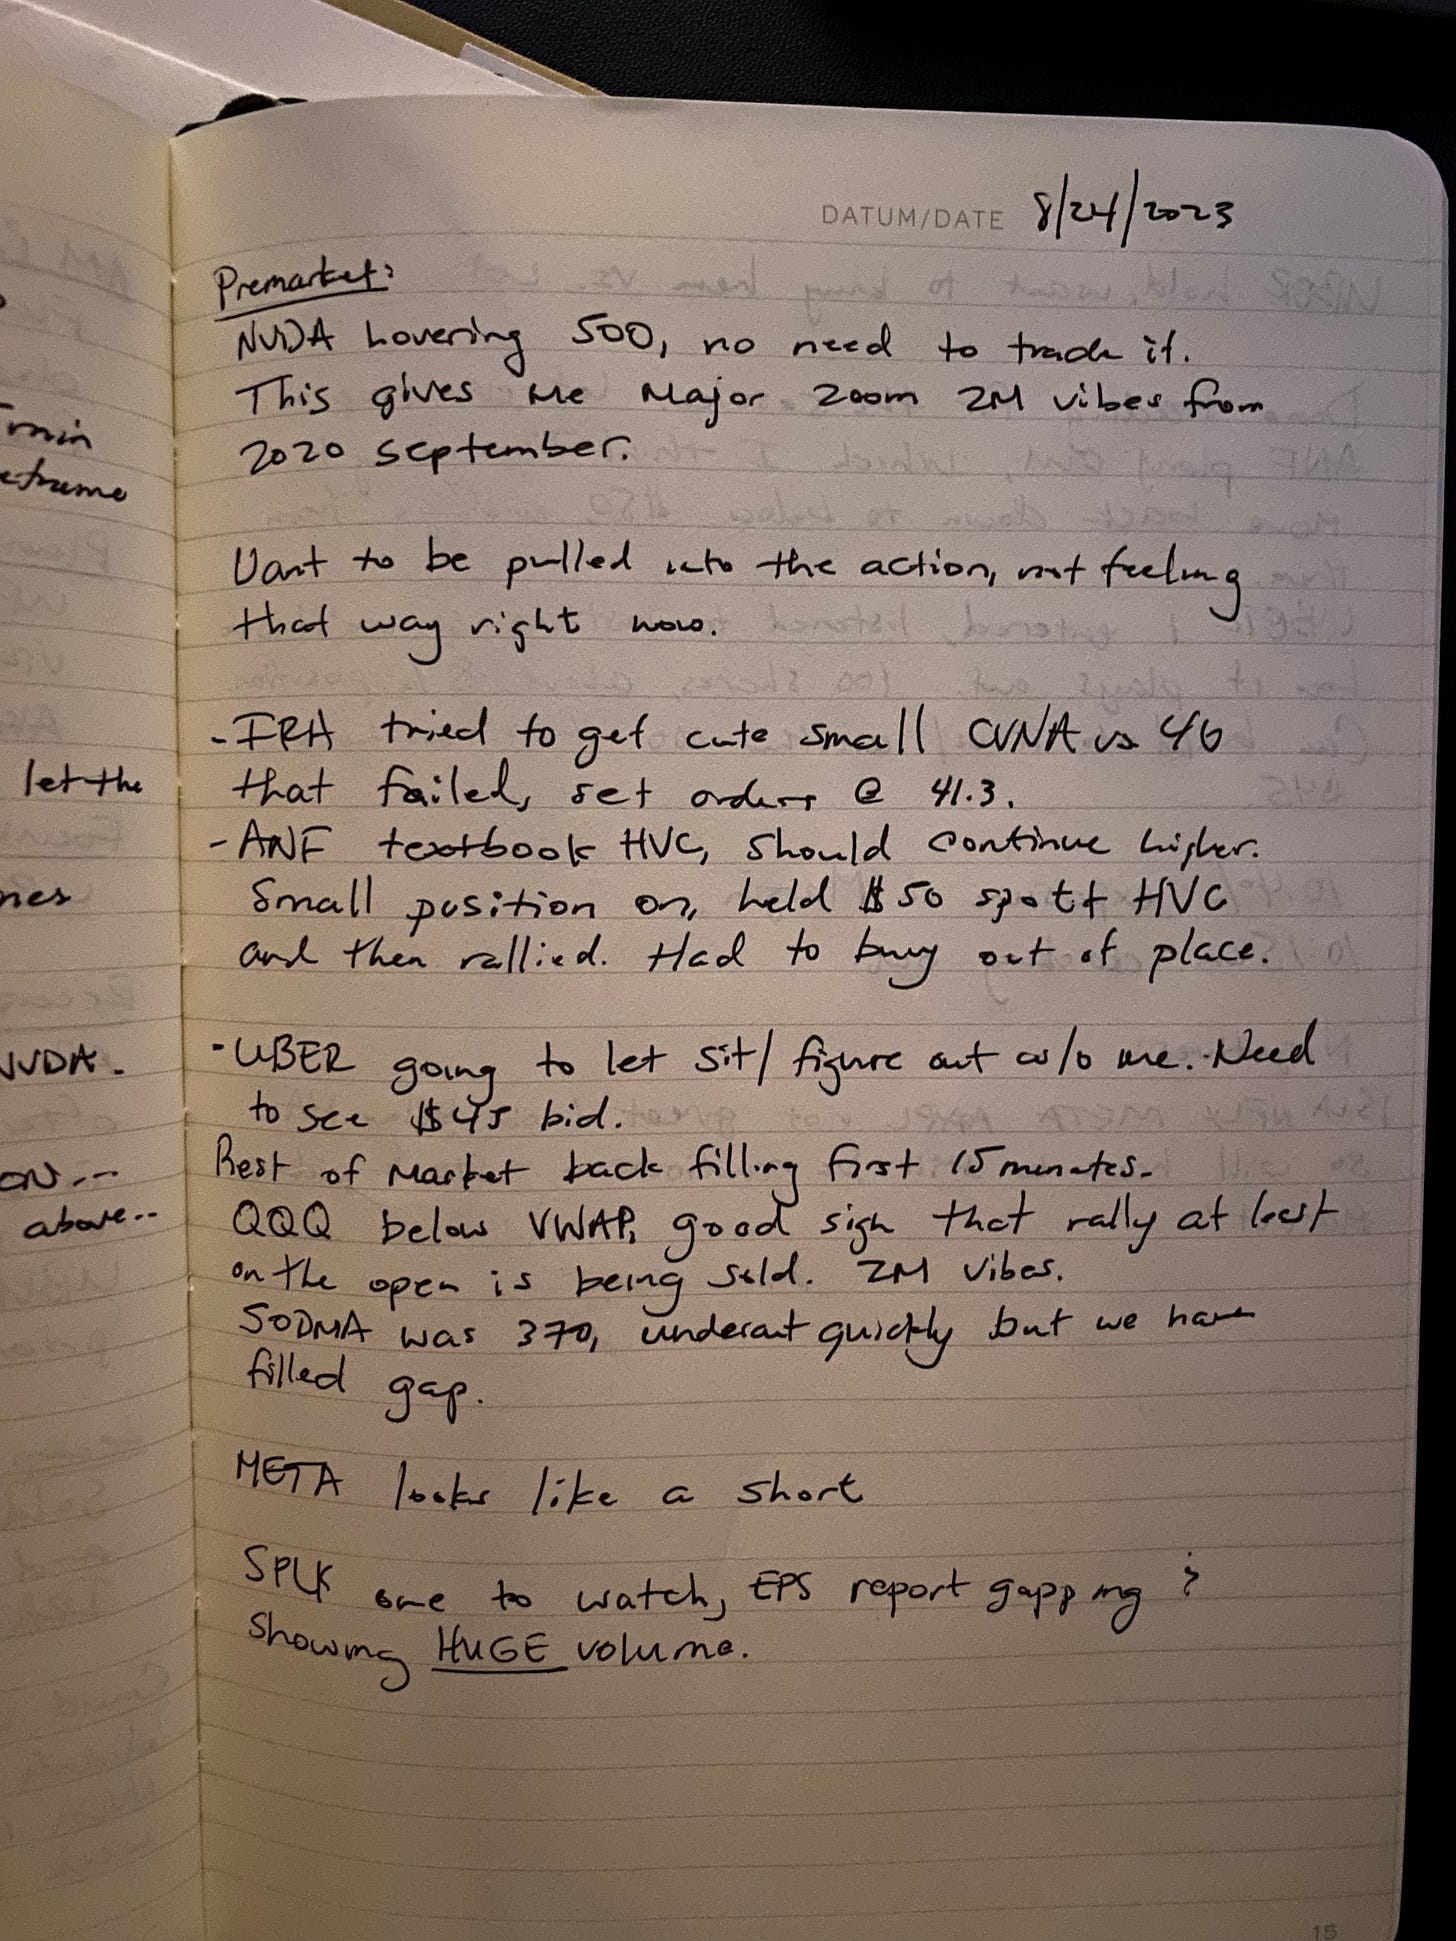 DATUM/DATE 8/24/2023
Premarket:
NVDA hovering 500, no need to trade it.
This gives me Major Zoom ZM vibes from
2020 September.
Want to be pulled into the action, not feeling
that way right now.
- IRA tried to get cute small CVNA vs 46
that failed, set orders @ 41.3.
- ANF textbook HVC, should continue higher.
Small position on, held $50 spot + HVC
and then rallied. Had to buy out of place.
- UBER going to let sit/figure out w/o me. Need
to see $45 bid.
Rest of Market back filling first 15 minutes.
QQQ below VWAP, good sign that rally at least
on the open is being sold. ZM vibes.
50DMA was 370, undercut quickly but we have
filled gap.
META looks like a short
SPLK one to watch, EPS report gapping ;
showing HUGE volume.
15
train
extreme
let the
NVDA.
above..